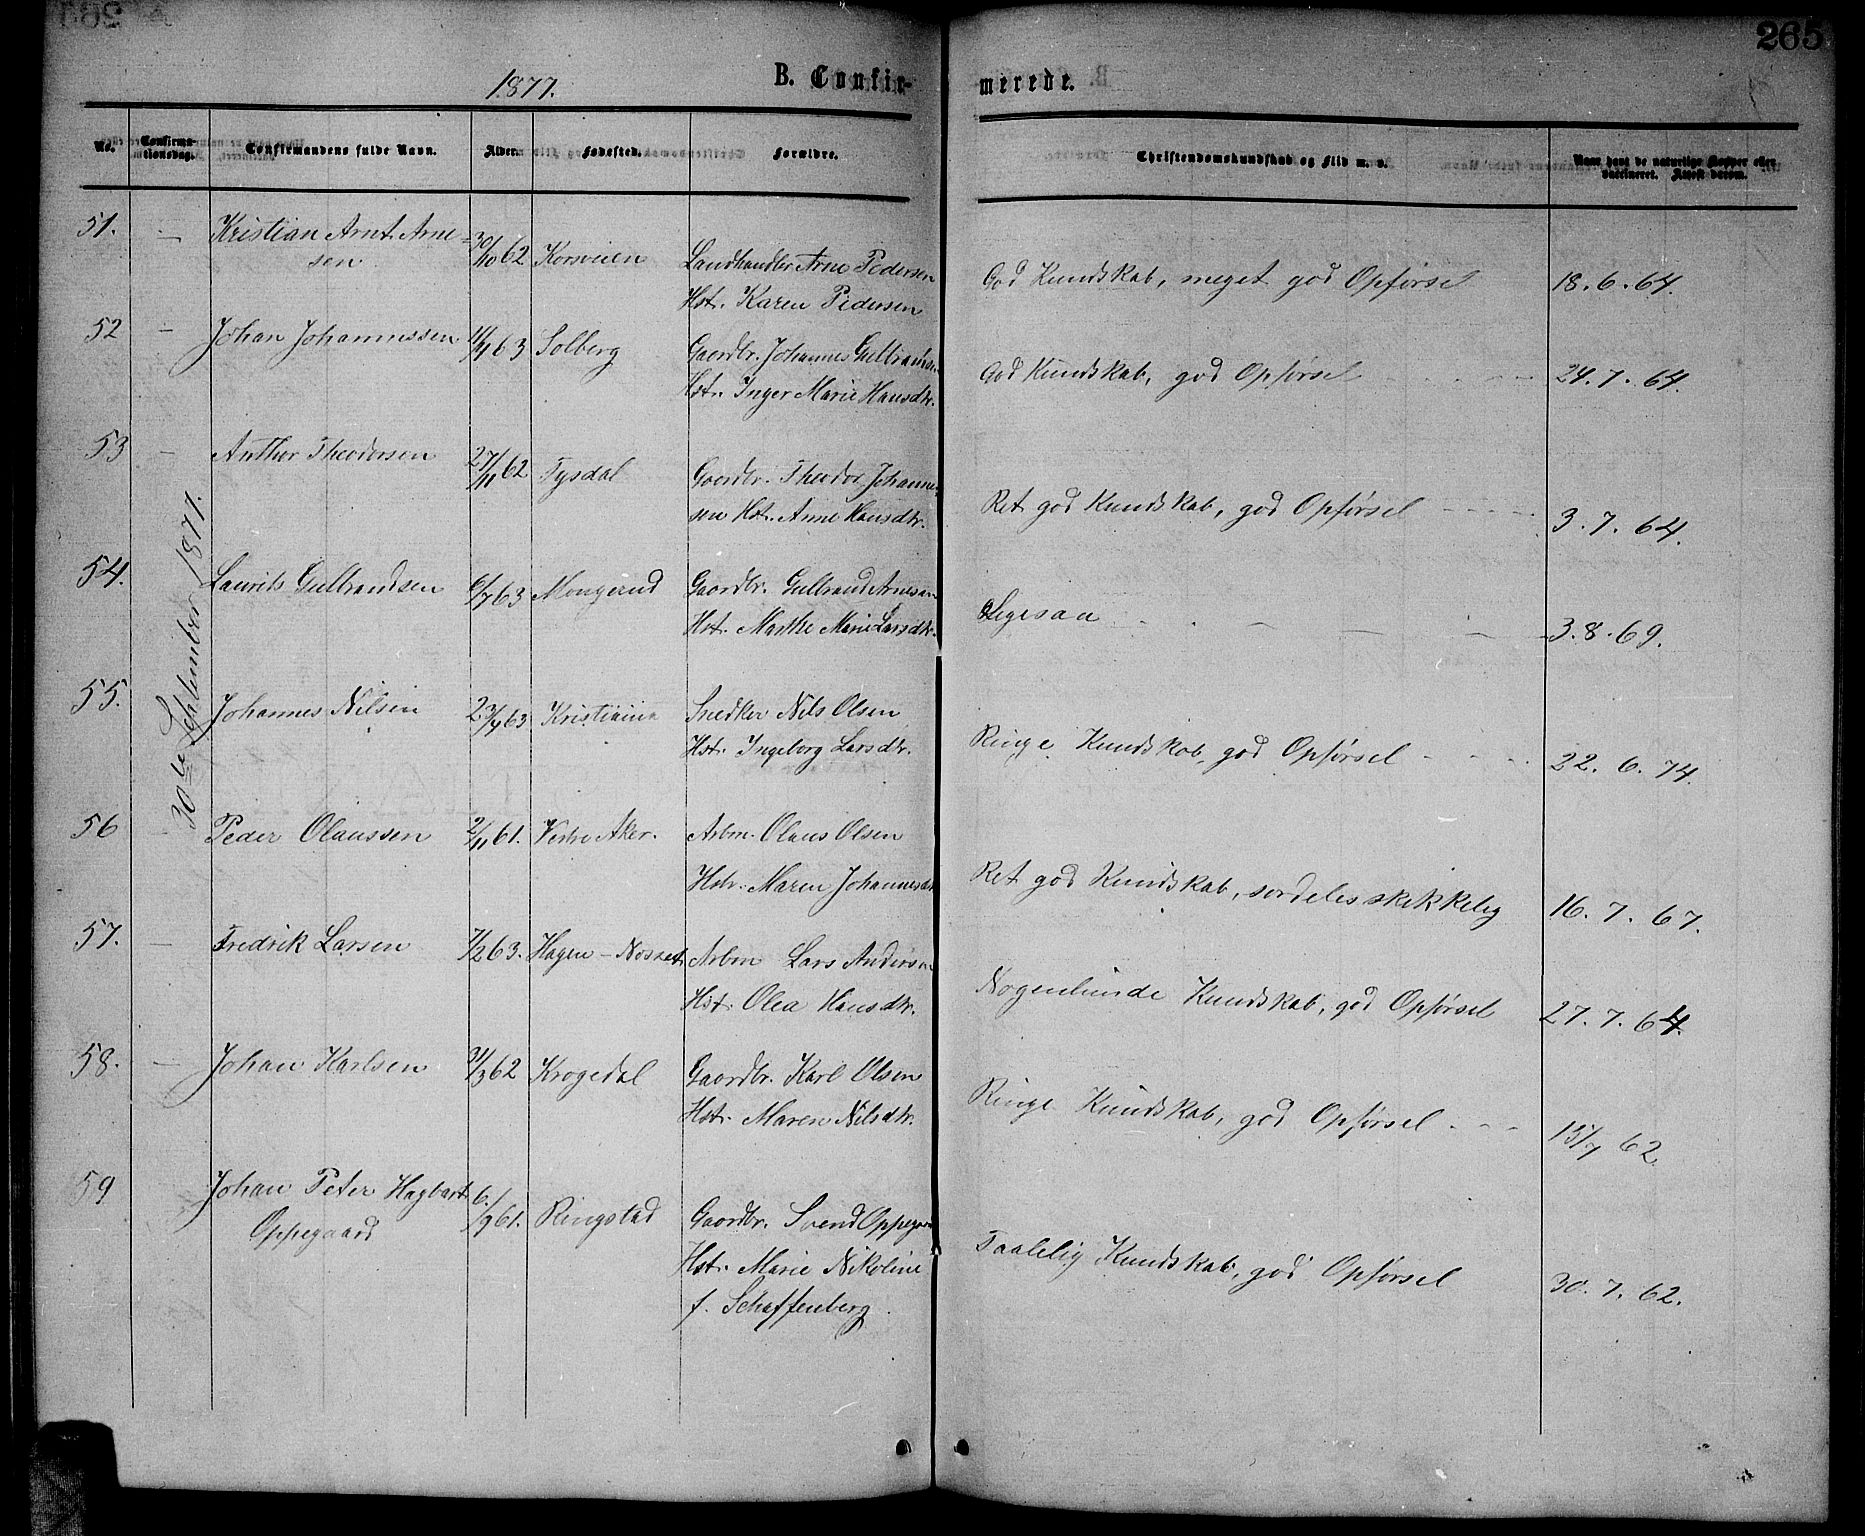 265
1877.
B. Confirmerede.
No. Confirmationsdag. Confirmandens fulde Navn. Alder. Fødested. Forældre. Christendomskundskab og Flid m. v. Naar havt de naturlige Kopper eller vaccineret. Attest derom.
30te September 1877.
51. — Kristian Arnt Arne- 30/10 62 Korsveien Landhandlr Arne Pedersen God Kundskab, meget god Opførsel 18. 6. 64.
sen Hstr. Karen Pedersen
52 — Johan Johannessen 63 Solberg Gaardbr. Johannes Gulbrandsen God Kundskab, god Opførsel 24. 7. 64.
Hstr. Inger Marie Hansdtr.
53 — Anthor Theodorsen 27/11 62 Tysdal Gaardbr. Theodor Johanne- Ret god Kundskab, god Opførsel 3. 7. 64.
sen Hst. Anne Hansdtr.
54. Laurits Gulbrandsen 6/7 63 Mongerud Gaardbr. Gulbrand Arnesen Ligesaa 3. 8. 69.
Hst. Marthe Marie Larsdtr.
55. Johannes Nilsen 63 Kristiania Snedker Nils Olsen Ringe Kundskab, god Opførsel 22. 6. 74.
Hstr. Ingeborg Larsdtr.
56 — Peder Olaussen 2/11 61. Vestre Aker. Arbm. Olaus Olsen Ret god Kundskab, særdeles skikkelig 16. 7. 67.
Hstr. Maren Johannesdtr
57. — Fredrik Larsen 7/2 63. Hagen – Arbm Lars Andersen Nogenlunde Kundskab, god Opførsel 27. 7. 64.
Hst. Olea Hansdtr.
58. — Johan Karlsen 31/3 62 Krogedal Gaardbr. Karl Olsen Ringe Kundskab, god Opførsel 15/7 62.
Hstr. Maren Nilsdtr.
59 Johan Peter Hagbart 6./9 61. Ringstad Gaardbr. Svend Oppegaard Taalelig Kundskab, god Opførsel 30. 7. 62.
Oppegaard Hstr. Marie Nikoline
f. Schaffenberg.